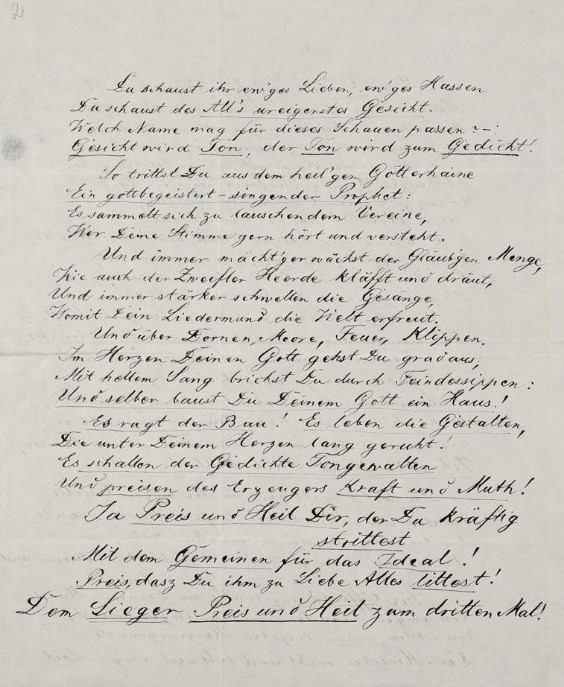 2
Du schaust ihr ew'ges Lieben, ew'ges Hassen
Du schaust des All's ureigenstes Gesicht.
Welch Name mag für dieses Schauen passen? –:
Gesicht wird Ton, der Ton wird zum Gedicht!
So trittst Du aus dem heil'gen Götterhaine
Ein gottbegeistert-singender Prophet:
Es sammelt sich zu lauschendem Vereine,
Wer Deine Stimme gern hört und versteht.
Und immer mächt'ger wächst der Gläub'gen Menge,
Wie auch der Zweifler Heerde kläfft und dräut,
Und immer stärker schwellen die Gesänge,
Womit Dein Liedermund die Welt erfreut.
Und über Dornen, Moore, Feuer, Klippen,
Im Herzen Deinen Gott gehst Du gradaus;
Mit hellem Sang brichst Du durch Feindessippen:
Und selber baust Du Deinem Gott ein Haus!
Es ragt der Bau! Es leben die Gestalten,
Die unter Deinem Herzen lang geruht!
Es schallen der Gedichte Tongewalten
Und preisen des Erzeugers Kraft und Muth!
Ja Preis und Heil Dir, der Du kräftig
strittest
Mit dem Gemeinen für das Ideal!
Preis, dasz Du ihm zu Liebe Alles littest!
Dem Sieger Preis und Heil zum dritten Mal!